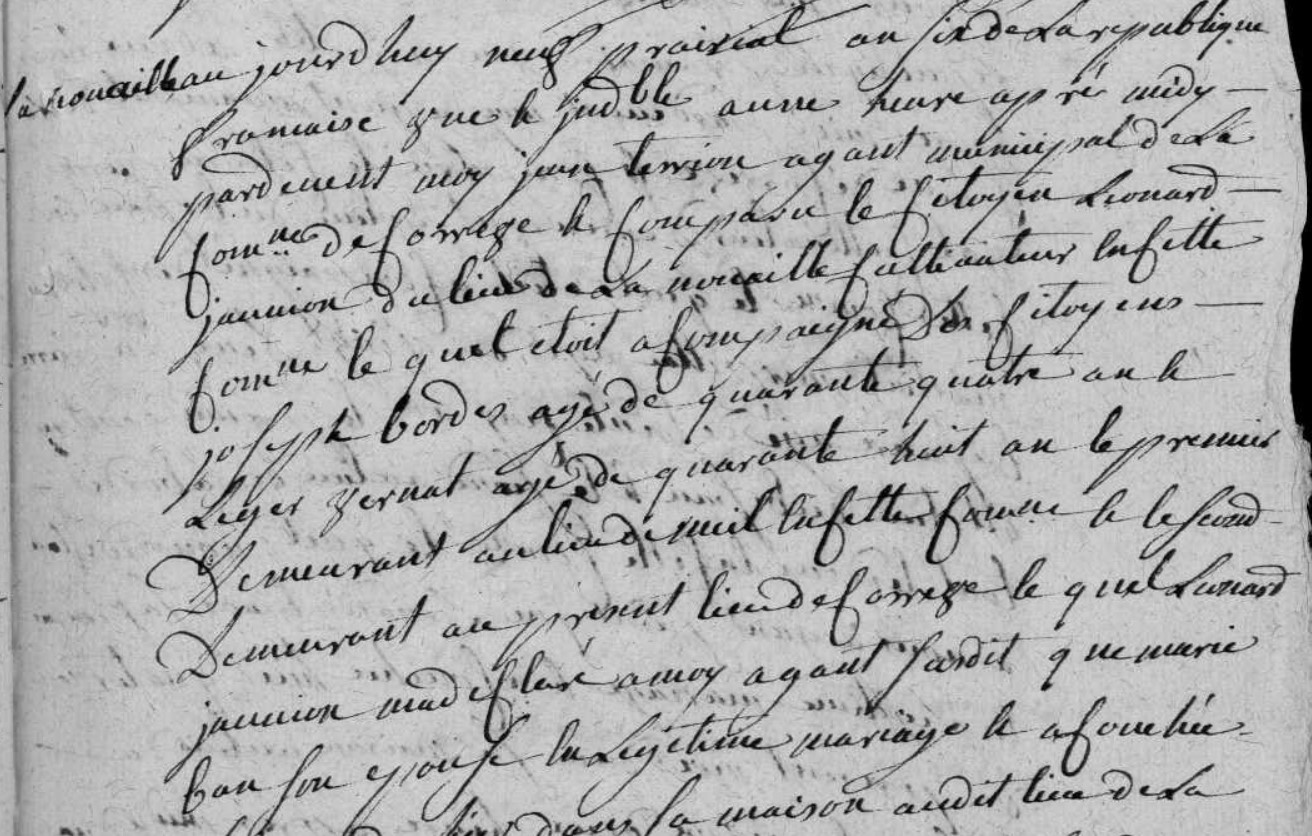 la nouaille
au jourdhuy neuf prairial an six de la republique
francaise une & indble a une heure apré midy
pardevent moy jean terrion agant municipal de la
comne de correze & comparu le citoyen Leonard
jaunion du lieu de la nouaille cultivateur en cette
comne le quel etoit acompaigné des citoyens
joseph bordes agé de quarante quatre an &
Leger vernat agé de quarante huit an le premier
Demeurant au lieu de en cette comne & le second
Demeurant au present lieu de correze le quel Leonard
jaunion ma declaré a moy agant susdit que marie
son epouse en Legetime mariage & acouchée
dans sa maison audit lieu de la